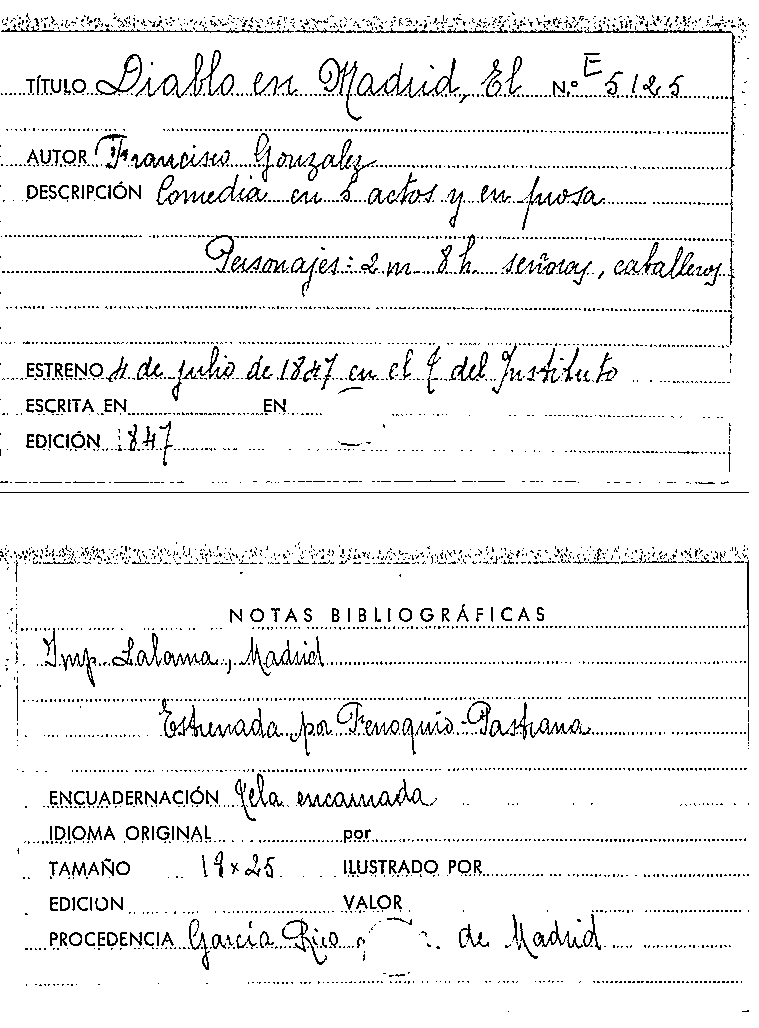 TÍTULO Diablo en Madrid, El N.º E 5125
AUTOR Francisco Gonzalez
DESCRIPCIÓN Comedia en 5 actos y en prosa
Personajes: 2 m 8 h. señoras, caballeros
ESTRENO 4 de julio de 1847 en el T del Instituto
ESCRITA EN EN
EDICIÓN 1847
NOTAS BIBLIOGRÁFICAS
Imp. Lalama, Madrid
Estrenada por Fenoquio-Pastrana
ENCUADERNACIÓN Tela encarnada
IDIOMA ORIGINAL por
TAMAÑO 19 x 25 ILUSTRADO POR
EDICION VALOR
PROCEDENCIA García Rico de Madrid